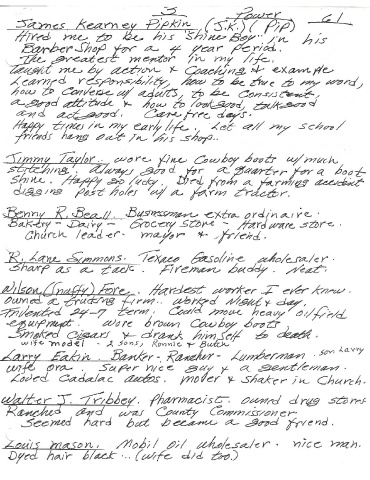 5 Power 61
James Kearney Pipkin (J.K.) (Pip)
Hired me to be his "Shine Boy" in his
Barber Shop for a 4 year period.
The greatest mentor in my life.
Taught me by action & coaching & example
Learned responsibility, how to be true to my word,
how to converse w/ adults, to be consistent,
a good attitude & how to look good, talk good
and act good. Care free days.
Happy times in my early life. Let all my school
friends hang out in his shop.
Jimmy Taylor. wore fine Cowboy boots w/ much
stitching. always good for a quarter for a boot
shine. Happy go lucky. Died from a farming accident
digging post holes w/ a farm tractor.
Benny R. Beall. Businessman extra ordinaire.
Bakery - Dairy - Grocery Store - Hardware store.
Church leader - mayor & friend.
R. Lane Simmons. Texaco Gasoline wholesaler.
Sharp as a tack. Fireman buddy. Neat.
Wilson (Snuffy) Fore. Hardest worker I ever knew.
owned a trucking firm. worked Night & day.
Invented 24-7 term. Could move heavy oilfield
equipment. wore brown Cowboy boots
Smoked Cigars & drank himself to death.
wife model 2 sons, Ronnie & Butch
Larry Eakin. Banker - Rancher - Lumberman. son Larry
wife ora. Super nice guy & a gentleman.
Loved Cadalac autos. mover & shaker in Church.
Walter J. Tribbey. Pharmacist. owned drug stores
Ranched and was County Commissioner
Seemed hard but became a good friend.
Louis Mason. Mobil oil wholesaler. nice man.
Dyed hair black... (wife did too.)